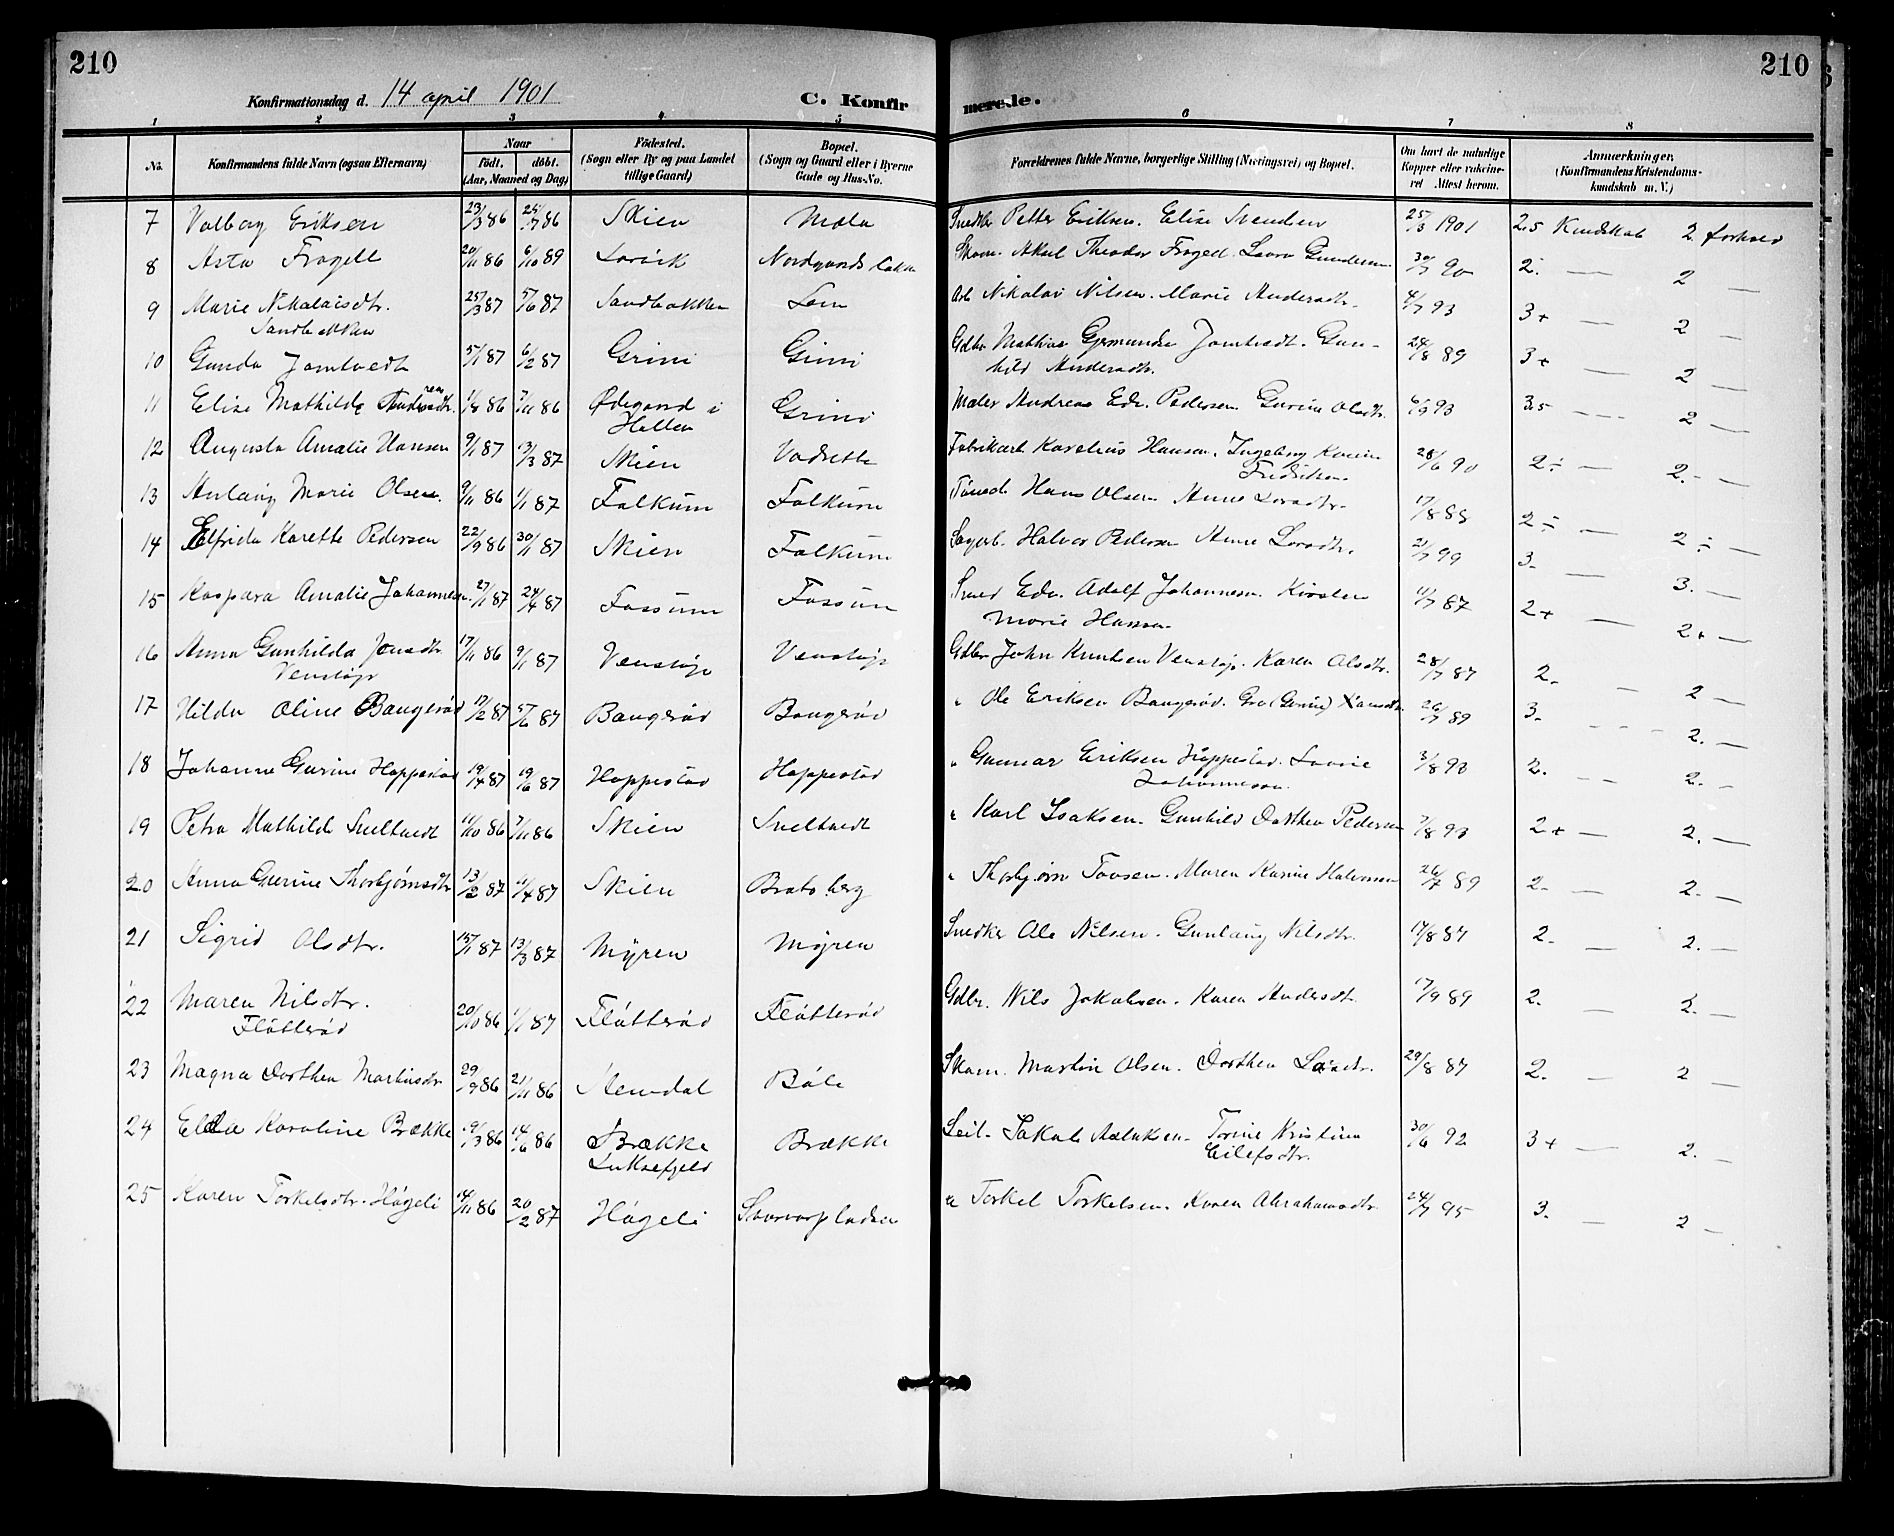 210
210
Konfirmationsdag d. 14 april 1901
C. Konfirmerede.
1 2 3 4 5 6 7 8
No. Konfirmandens fulde Navn (ogsaa Efternavn) Naar født. døbt. (Aar, Maaned og Dag) Fødested. (Sogn eller By og paa Landet tillige Gaard) Bopæl. (Sogn og Gaard eller i Byerne Gade og Hus-No. Forældrenes fulde Navne, borgerlige Stilling (Næringsvei) og Bopæl. Om havt de naturlige Kopper eller vakcineret Attest herom. Anmærkninger. (Konfirmandens Kristendomskundskab m. V.)
7 Valborg Eriksen 23/3 86 25/7 86 Skien Mæla Snedker Petter Eriksen. Elise Svendsen 25/3 1901 2.5 Kundskab 2. forhold
8 Asta Fragell 20/11 86 6/10 89 Larvik Skom. Theodor Fragell. Laura Gundersen 30/7 90 2. — 2 —
9 Marie Nikolaisdtr. 25/3 87 5/6 87 Sandbakken Lem Arb Nikolai Nilsen. Marie Andersdtr. 4/7 93 3+ — 2 —
Sandbakken
10 Gunda Jomtvedt 5/1 87 6/2 87 Grini Grini Gdbr Mathias Jomtvedt. Gun-
hild Andersdtr. 24/8 89 3+ — 2 —
11 Elise Mathilde 1/8 86 7/11 86 Ødegaard i Grini Maler Andreas Edv. Pedersen. Gurine Olsdtr. 6/9 93 3.5 --- 2 —
12 Augusta Amalie Hansen 9/1 87 13/3 87 Skien Fabrikarb Karelius Hansen. Ingeborg Karine 28/6 90 2÷ — 2.- —
13 Anlaug Marie Olsen. 9/11 86 1/1 87 Falkum Falkum Hans Olsen Anne Larsdtr. 17/8 88 2÷ — 2÷ —
14 Elfrida Karette Pedersen 22/9 86 30/1 87 Skien Falkum Sagarb. Halvor Pedersen Anne Larsdtr. 21/7 99 3. — 3. —
15 Kaspara Amalie Johannesen. 27/1 87 24/4 87 Fossum Fossum Smed Edv. Adolf Johannesen. Kirsten
Marie Hansen 11/7 87 2+ — 2+ —
16 Anna Gunhilda Jonsdtr 17/11 86 9/1 87 Venstøp Venstøp Gdbr John Knutsen Venstøp. Karen Olsdtr. 28/7 87 2. — 2 —
Venstøp
17 Hilda Oline Baugerød 17/2 87 5/6 87 Baugerød Baugerød " Ole Eriksen Baugerød. Gro (Gurine) 26/7 89 3. --- 2. —
18 Johanne Gurine Hoppestad 19/4 87 19/6 87 Hoppestad Hoppestad " Gunnar Eriksen Hoppestad. Lovise
Johannesen. 3/8 93 2. -- 2. —
19 Petra Mathilde Sneltvedt 11/10 86 7/11 86 Skien Sneltvedt " Karl Isaksen. Gunhild Dorthea Pedersen 7/8 93 2+ — 2. —
20 Anna Gurine Thorbjørnsdtr 13/2 87 11/4 87 Skien Bratsberg " Thorbjørn Tovsen. Maren Karine Halvorsen 26/7 89 2. — 2. —
21 Sigrid Olsdtr. 15/1 87 13/3 87 Myren Myren Snedker Ole Nilsen. Gunlaug Nilsdtr. 17/8 87 2. — 2. —
22 Maren Nilsdtr. 20/10 86 1/1 87 Fløtterød Fløtterød Gdbr. Nils Jakobsen. Karen Andersdtr. 17/9 89 2. — 2. —
Fløtterød
23 Magna Dorthea Martinsdtr 29/9 86 21/11 86 Stemdal Bøle Skom. Martin Olsen. Dorthea Larsdtr. 29/8 87 2. — 2 —
24 Elda Karoline Brække 19/3 86 14/6 86 Brække Brække Leil. Jakob Torine Kristine 30/6 92 3+ — 2. —
Luksefjeld Eilefsdtr.
25 Karen Torkelsdtr. Høgeli 14/11 86 20/2 87 Høgeli " Torkel Torkelsen. Karen Abrahamsdtr. 24/7 95 3. — 2 —